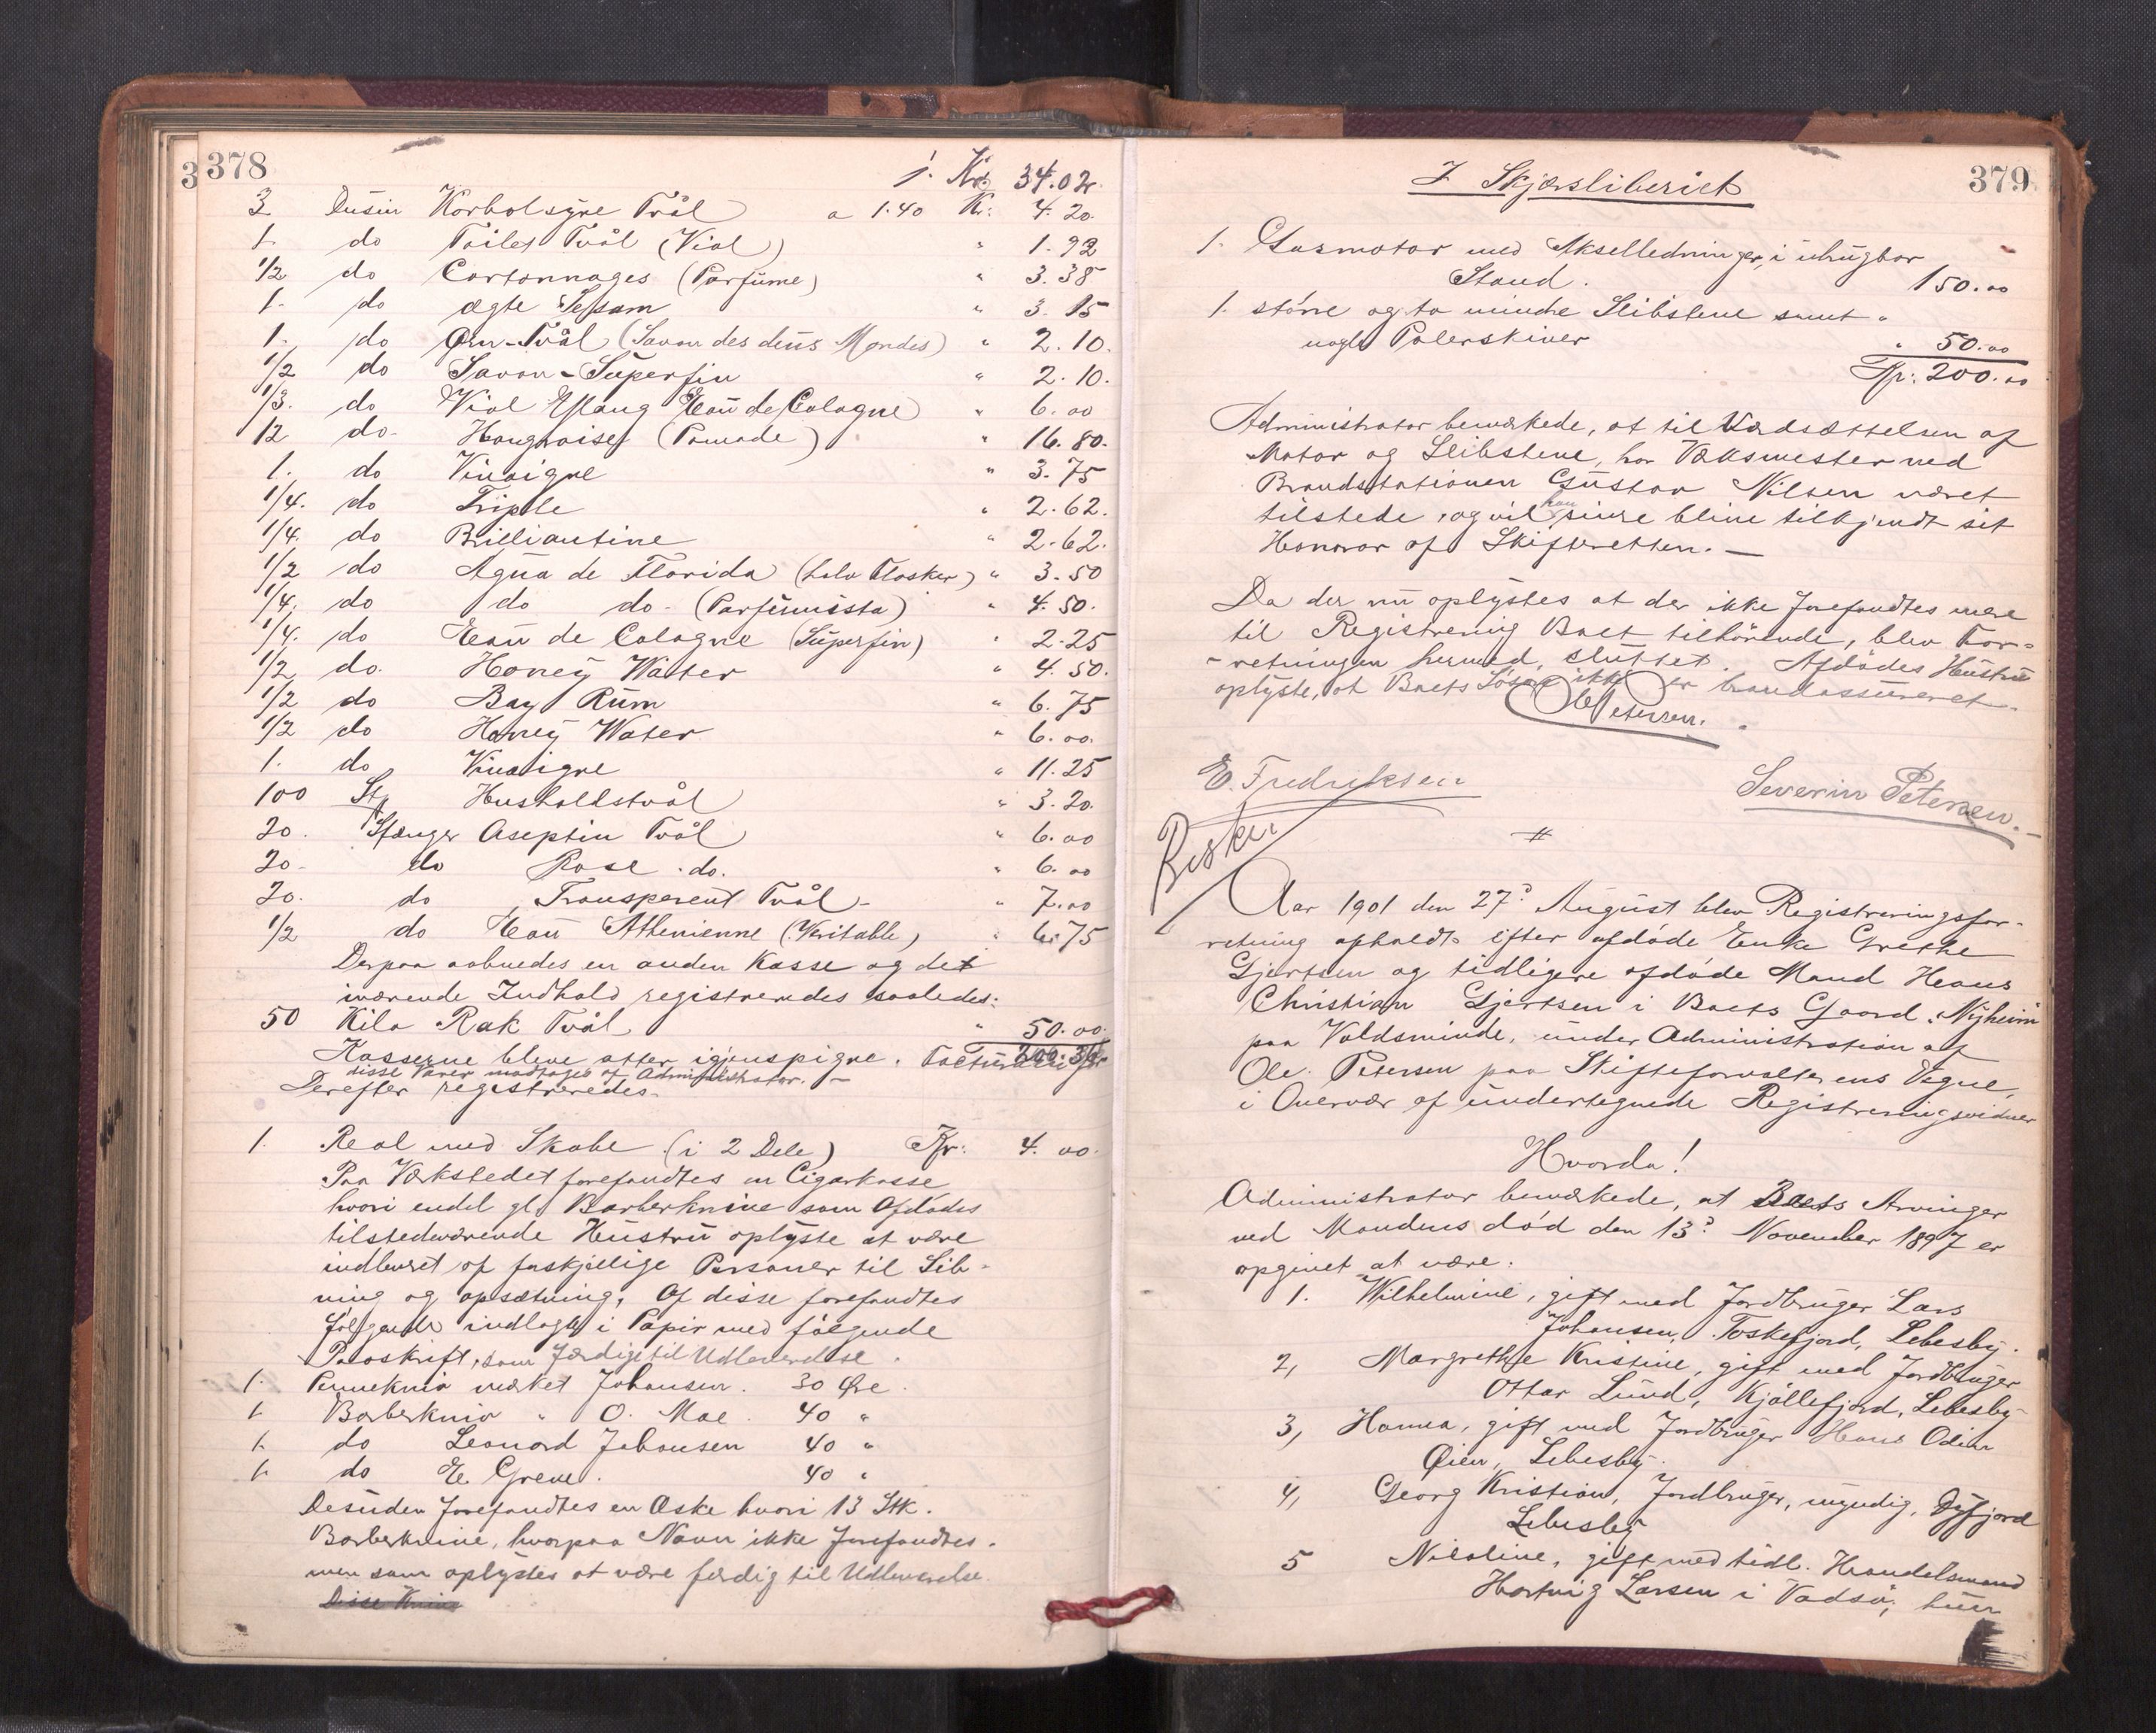 378
1. Kr: 34.02.
3 Dusin Karbolsyre Tvål a 1.40 Kr: 4.20.
1. do Toilet Tvål (Viol) " 1.92
1/2 do Cartonnages (Parfüme) " 3.38
1. do ægte " 3.15
1. do Tvål (Savon des deus Mondes) " 2.10.
1/2 do Savon-Superfin " 2.10.
1/3. do Viol Eau de Cologne " 6.00
12 do Hongroise (Pomade) " 16.80.
1. do Vinaigre " 3.75
1/4. do Triple " 2.62.
1/4. do Brilliantine " 2.62.
1/2 do Agua de Florida (halv Flasker) " 3.50
1/4. do do do- " 4.50.
1/4. do Eau de Cologne (Superfin) " 2.25
1/2 do. Honey Water " 4.50.
1/2 do Bay Rum " 6.75
1/2 do Honey Water " 6.00.
1. do Vinaigre " 11.25
100 Stk Husholdstvål " 3.20.
20. Stænger Aseptin Tvål " 6.00
20- do Rose do. " 6.00
20. do Transperent Tvål- " 7.00
1/2 do Eau Athenienne (Veritable) " 6.75
Derpaa aabnedes en anden Kasse og det
iværende Indhold registreredes saaledes:
50 Kilo Rak Tvål " 50.00.
Kasserne bleve atter igjenspigre.
disse Varer modtages af Administrator. -
Derefter registreredes-
1. Reol med Skabe (i 2 Dele) Kr: 4.00.
Paa Værkstedet forefandtes en Cigarkasse
hvori endel gl. Barberknive som Afdødes
tilstedeværende Hustru oplyste at være
indleveret af forskjellige Personer til Slib-
ning og opsætning. Af disse forefandtes
følgende indlagt i Papir med følgende
Paaskrift, som færdige til Udleverelse.
1. Penneknív mærket Johansen. 30 Øre.
1 Barberkniv " O. Moe. 40 "
1. do Leonard Johansen 40 "
1. do E. Greve. 40 "
Desuden forefandtes en Æske hvori 13 Stk.
Barberknive, hvorpaa Navn ikke forefandtes.
men som oplystes at være færdig til Udleverelse.
Disse Knive
379
I Skjærsliberiet
1. Gasmotor med Akselledninger, i ubrugbar
Stand. 150.00
1. større og to mindre Slibstene samt "
nogle Polerskiver " 50.00
Kr: 200.00
Administrator bemærkede, at til Værdsættelsen af
Motor og Slibstene, har Vaksmester ved
Brandstationen Gustav Nilsen været
tilstede, og vil han sinere blive tilkjendt sit
Honorar af Skifteretten. -
Da der nu oplystes at der ikke forefandtes mere
til Registrering Boet tilhørende, blev For-
-retningen hermed, sluttet. Afdødes Hustru
oplyste, at Boets Løsøre ikke er brandassureret.
Ole Petersen.
E. Fredriksen
Severin Petersen.
#
Aar 1901 den 27? August blev Registreringsfor-
retning afholdt efter afdøde Enke Grethe
Gjertsen og tidligere afdøde Mand Hans
Christian Gjertsen i Boets Gaard "Nyheim"
paa Voldsminde, under Administration af
Ole Petersen paa Skifteforvalterens Vegne,
i Overvær af undertegnede Registreringsvidner
Hvorda!
Administrator bemærkede, at Boets Arvinger
ved Mandens død den 13? November 1897 er
opgivet at være:
1. Wilhelmine, gift med Jordbruger Lars
Johansen, Toskefjord, Lebesby.
2, Margrethe Kristine, gift med Jordbruger
Ottar Lund, Kjøllefjord, Lebesby
3, Hanna, gift med Jordbruger Hans Odin
Øien, Lebesby.
4, Georg Kristian, Jordbruger, myndig, Dyfjord
Lebesby
5 Nicoline, gift med tidl. Handelsmand
Hartvig Larsen i Vadsø, hun